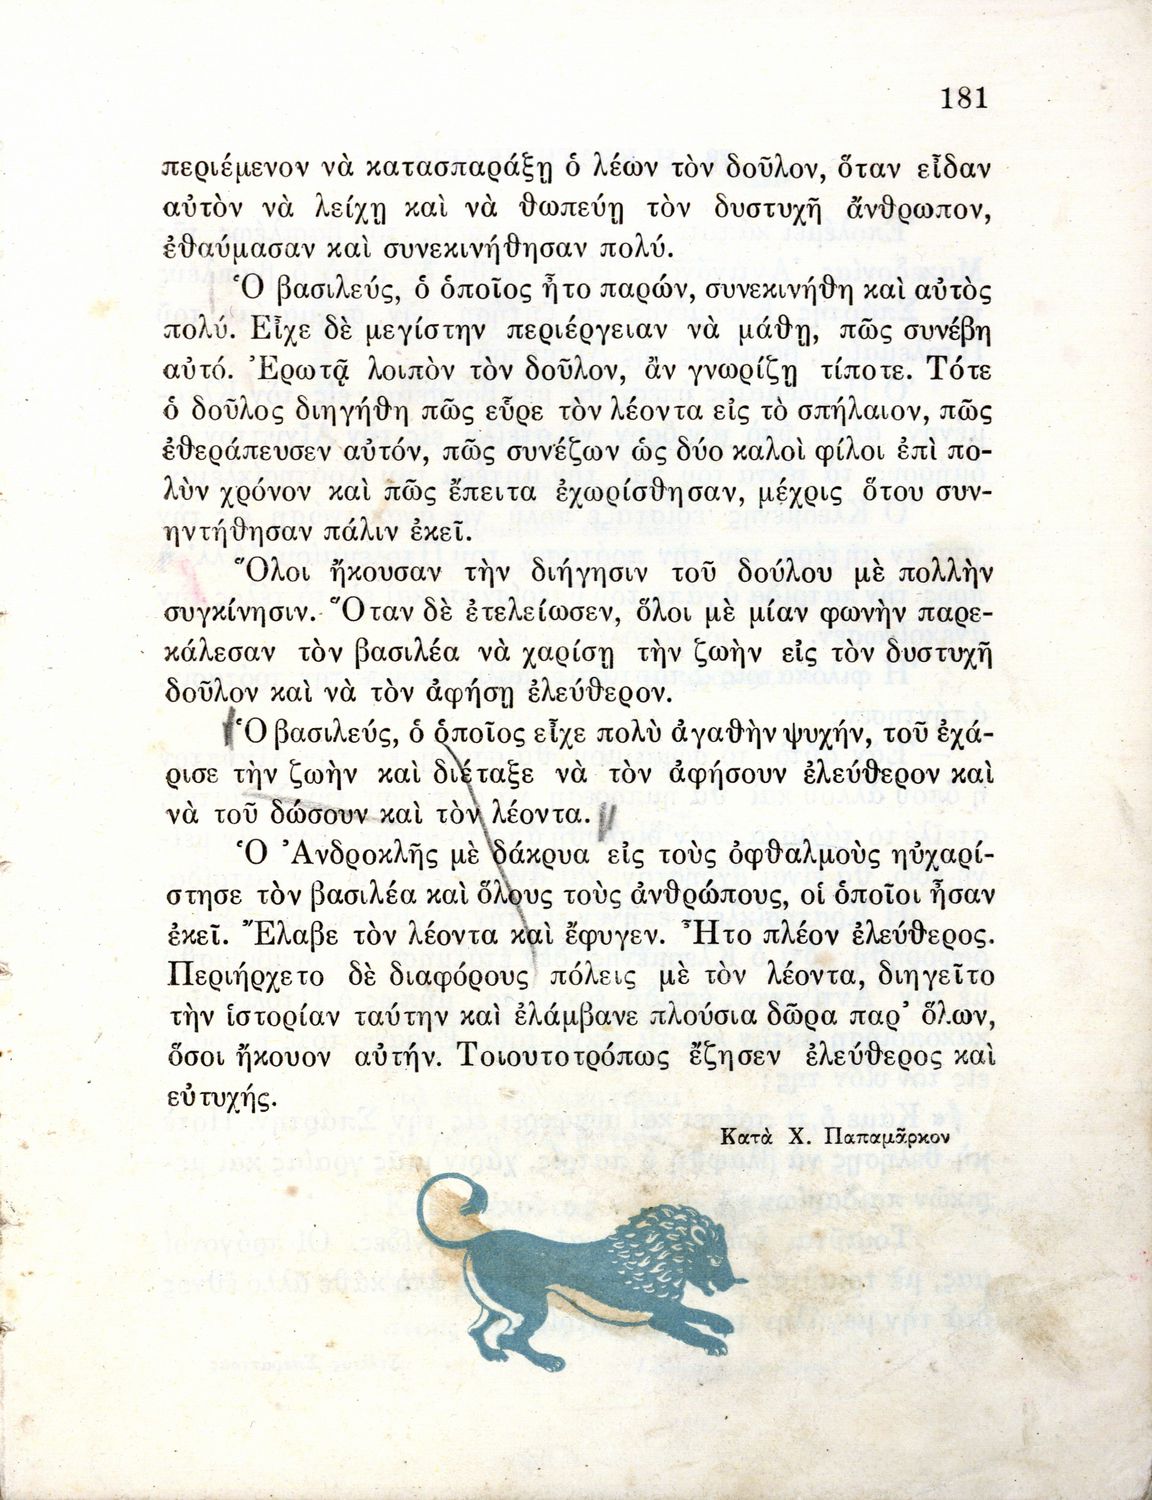 181
περιέμενον νὰ κατασπαράξῃ ὁ λέων τὸν δοῦλον, ὅταν εἶδαν
αὐτὸν νὰ λείχῃ καὶ νὰ θωπεύῃ τὸν δυστυχῆ ἄνθρωπον,
ἐθαύμασαν καὶ συνεκινήθησαν πολύ.
Ὁ βασιλεύς, ὁ ὁποῖος ἦτο παρών, συνεκινήθη καὶ αὐτὸς
πολύ. Εἶχε δὲ μεγίστην περιέργειαν νὰ μάθῃ, πῶς συνέβη
αὐτό. Ἐρωτᾷ λοιπὸν τὸν δοῦλον, ἂν γνωρίζῃ τίποτε. Τότε
ὁ δοῦλος διηγήθη πῶς εὗρε τὸν λέοντα εἰς τὸ σπήλαιον, πῶς
ἐθεράπευσεν αὐτόν, πῶς συνέζων ὡς δύο καλοὶ φίλοι ἐπὶ πο-
λὺν χρόνον καὶ πῶς ἔπειτα ἐχωρίσθησαν, μέχρις ὅτου συν-
ηντήθησαν πάλιν ἐκεῖ.
Ὅλοι ἤκουσαν τὴν διήγησιν τοῦ δούλου μὲ πολλὴν
συγκίνησιν. Ὅταν δὲ ἐτελείωσεν, ὅλοι μὲ μίαν φωνὴν παρε-
κάλεσαν τὸν βασιλέα νὰ χαρίσῃ τὴν ζωὴν εἰς τὸν δυστυχῆ
δοῦλον καὶ νὰ τὸν ἀφήσῃ ἐλεύθερον.
Ὁ βασιλεύς, ὁ ὁποῖος εἶχε πολὺ ἀγαθὴν ψυχήν, τοῦ ἐχά-
ρισε τὴν ζωὴν καὶ διέταξε νὰ τὸν ἀφήσουν ἐλεύθερον καὶ
νὰ τοῦ δώσουν καὶ τὸν λέοντα.
Ὁ Ἀνδροκλῆς μὲ δάκρυα εἰς τοὺς ὀφθαλμοὺς ηὐχαρί-
στησε τὸν βασιλέα καὶ ὅλους τοὺς ἀνθρώπους, οἱ ὁποῖοι ἦσαν
ἐκεῖ. Ἔλαβε τὸν λέοντα καὶ ἔφυγεν. Ἦτο πλέον ἐλεύθερος.
Περιήρχετο δὲ διαφόρους πόλεις μὲ τὸν λέοντα, διηγεῖτο
τὴν ἱστορίαν ταύτην καὶ ἐλάμβανε πλούσια δῶρα παρ' ὅλων,
ὅσοι ἤκουον αὐτήν. Τοιουτοτρόπως ἔζησεν ἐλεύθερος καὶ
εὐτυχής.
Κατὰ Χ. Παπαμᾶρκον